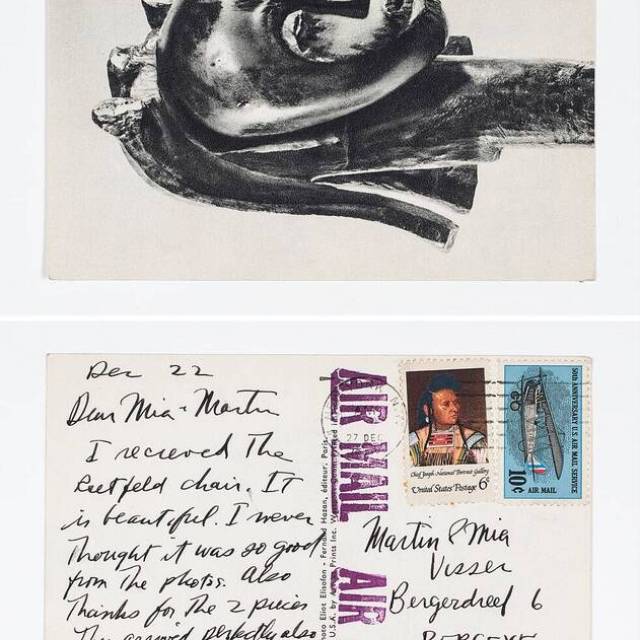 Dec 22
Dear Mia + Martin
I recieved The
Rietfeld chair. IT
is beautiful. I never
Thought it was so good
from The photos. Also
Thanks for The 2 pieces
arrived perfectly also
Eliot Elisofon - Fernand Hazan, éditeur, Paris
U.S.A. by Prints Inc.
AIR MAIL
AIR
27 DEC
Chief Joseph·National Portrait Gallery
United States Postage 6¢
50TH ANNIVERSARY U.S. AIR MAIL SERVICE
10¢ AIR MAIL
Martin & Mia
Visser
Bergerdreef 6
BERGEYK